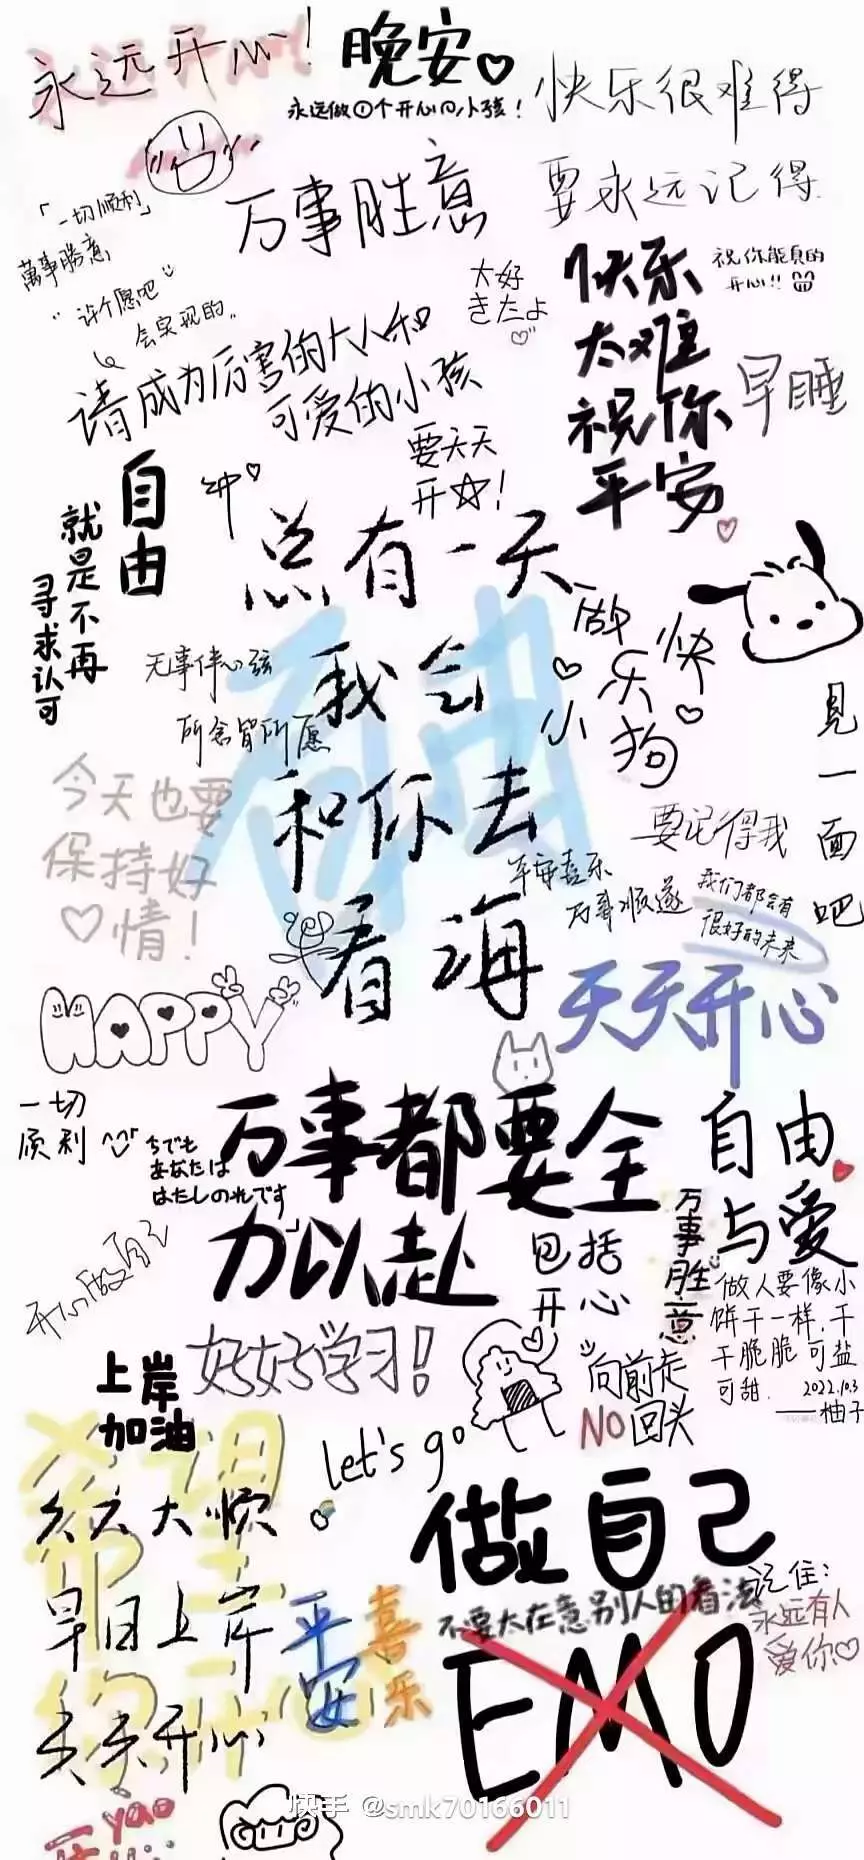 永远开心！
晚安
永远做①个开心の小孩！
快乐很难得
要永远记得
「一切顺利」
万事胜意
萬事勝意
许个愿吧
会实现的
大好
きたよ
快乐
太难
祝你
平安
祝你能真的
开心!!
早睡
请成为厉害的大人和
可爱的小孩
要天天
开☆！
自由
就是不再
寻求认可
冲
总有一天
我会
和你去
看海
自由
做快乐小狗
无事绊心弦
所念皆所愿
见一面吧
今天也要
保持好
♡情！
要记得我
平安喜乐
万事顺遂
我们都会有
很好的未来
HAPPY
天天开心
一切
顺利
ちでも
あなたは
はたしのれです
万事都要全
力以赴
包括
开心
自由
与爱
万事胜意
做人要像小
饼干一样，干
干脆脆可盐
可甜
2022.10.3
——柚子
开心做自己
好好学习！
上岸
加油
向前走
NO回头
let's go
希望
你开心
天天大顺
早日上岸
天天开心
平安
喜乐
做自己
不要太在意别人的看法
EMO
记住：
永远有人
爱你♡
yao
快手 @smk70166011